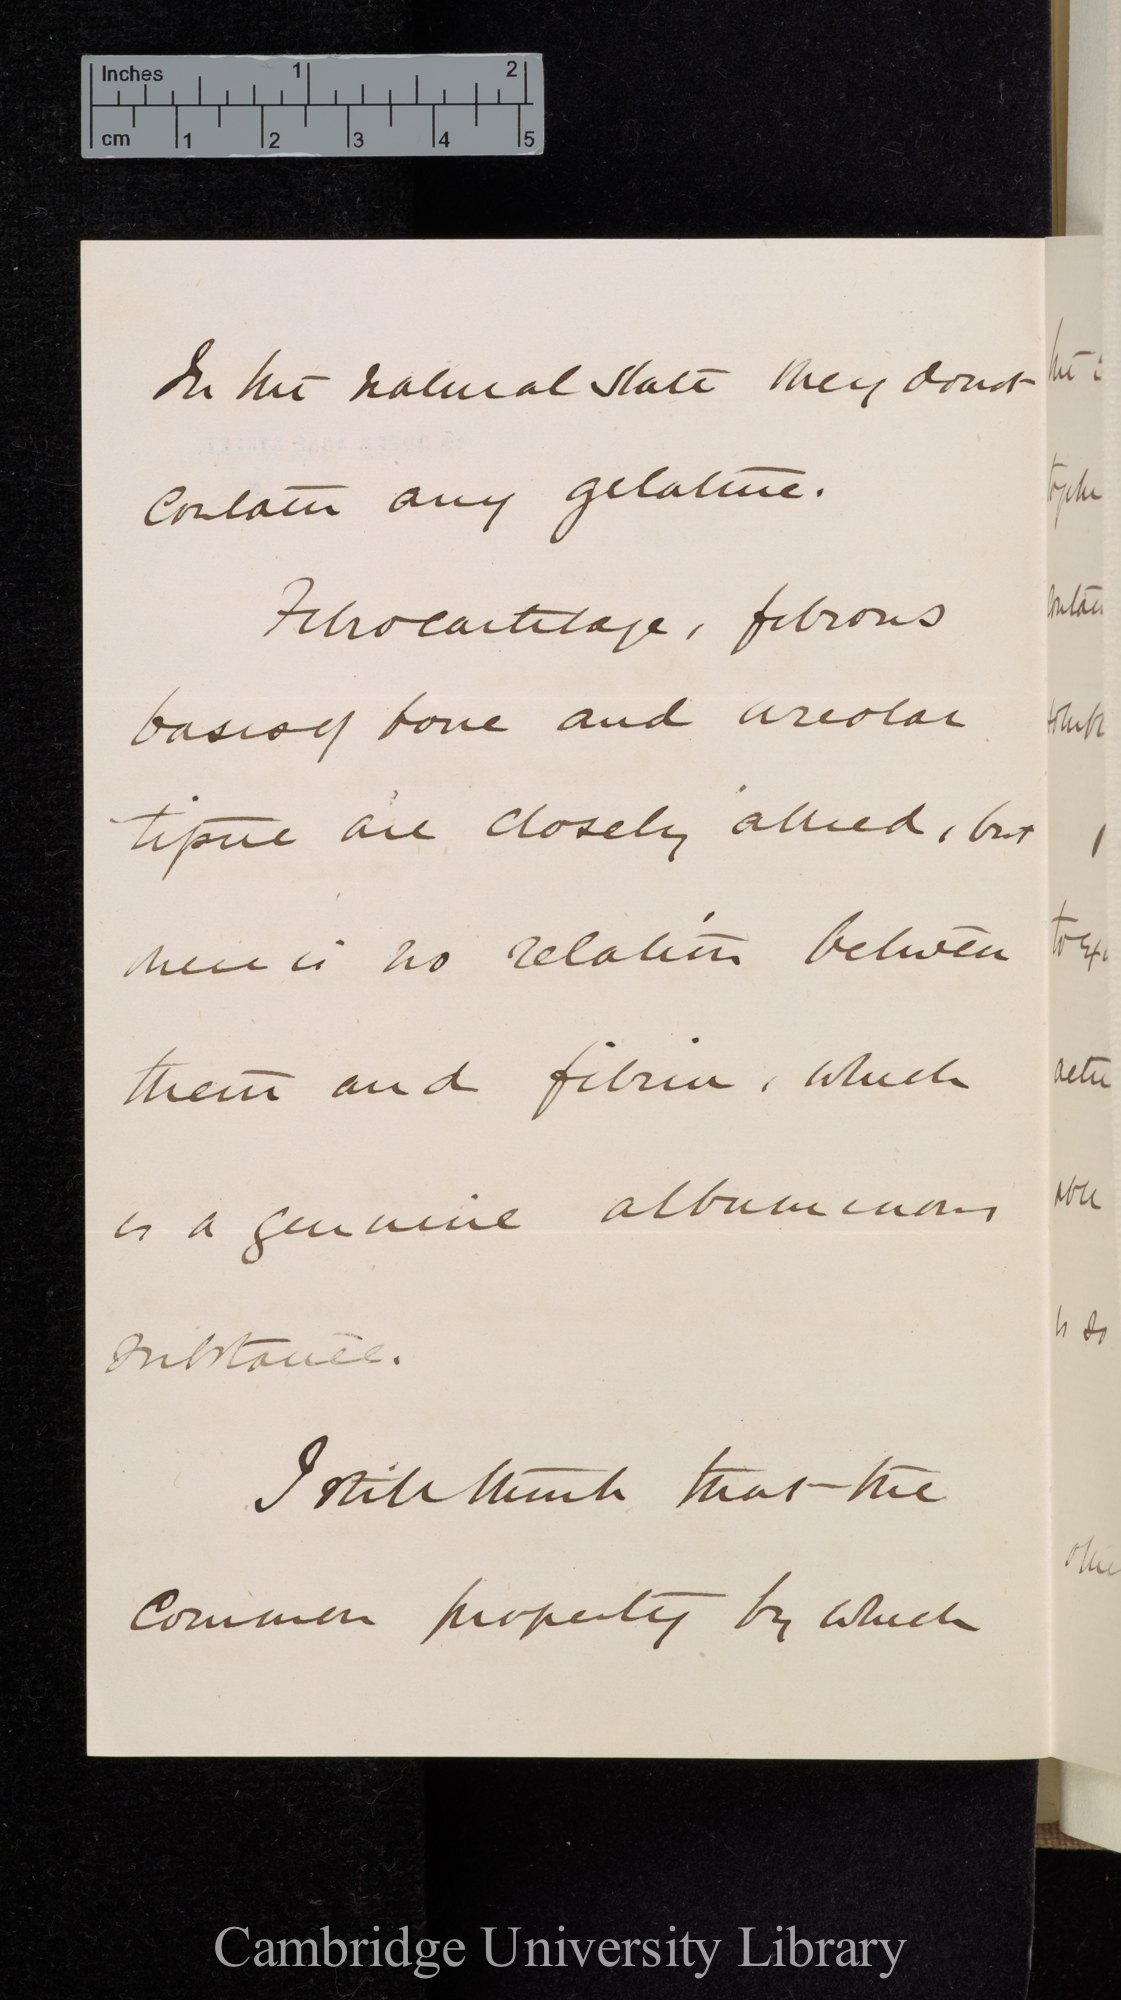 Inches 1 2
cm 1 2 3 4 5
In the natural state they do not
contain any gelatine.
Fibrocartilage, fibrous
basis of bone and areolar
tissue are closely allied, but
there is no relation between
them and fibrin, which
is a genuine albuminous
substance.
I still think that the
common property by which
Cambridge University Library